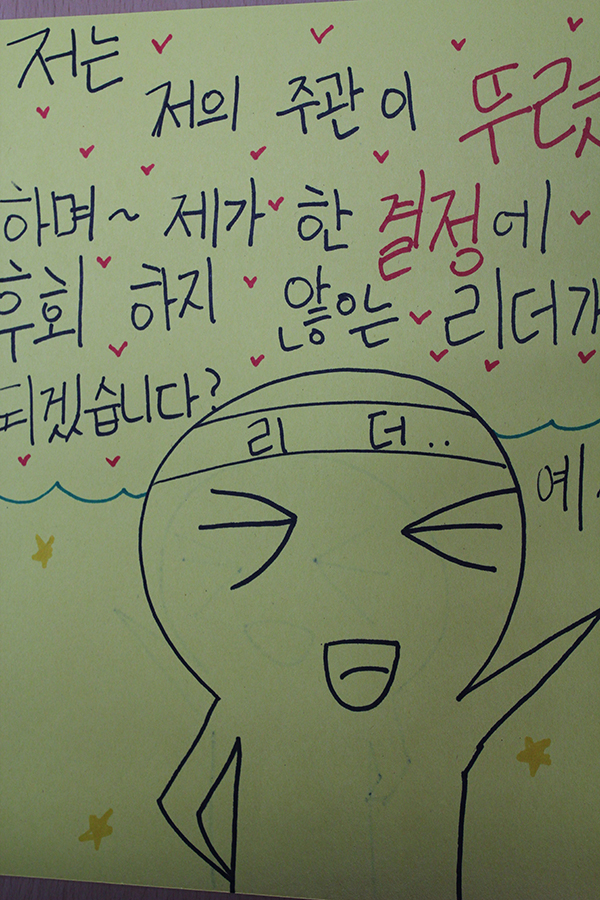 저는
저의 주관이 뚜렷
하며~ 제가 한 결정에
후회 하지 않는 리더가
되겠습니다?
리 더..
예